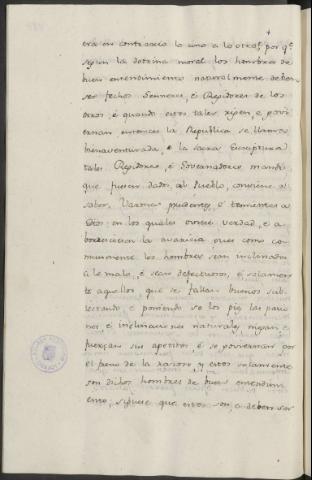 era en contrario lo uno a lo otro, por q.e
segun la dotrina moral los hombres de
buen entendimiento naturalmente deben
ser fechos Señores, é Regidores de los
otros, é quando estos tales rigen, e govi
ernan entonces la Republica se llama
bienaventurada, e la sacra Escriptura
tales Regidores, é Governadores mandó
que fuesen dados al Pueblo, conviene a
saber, Varones prudentes, é temientes a
Dios en los quales oviese verdad, e a
borreciesen la avaricia, pues como co
munmente los hombres sean inclinados
á lo malo, é sean defectuosos, é solamen
te aquellos que se fallan buenos sub
jectando, e poniendo so los pies las pasio
nes, e inclinaciones naturales rigan, e
fuerçan sus apetitos, é se goviernan por
el freno de la raxon, y estos solamente
son dichos hombres de buen entendim
iento, siguese que estos son, e deben ser